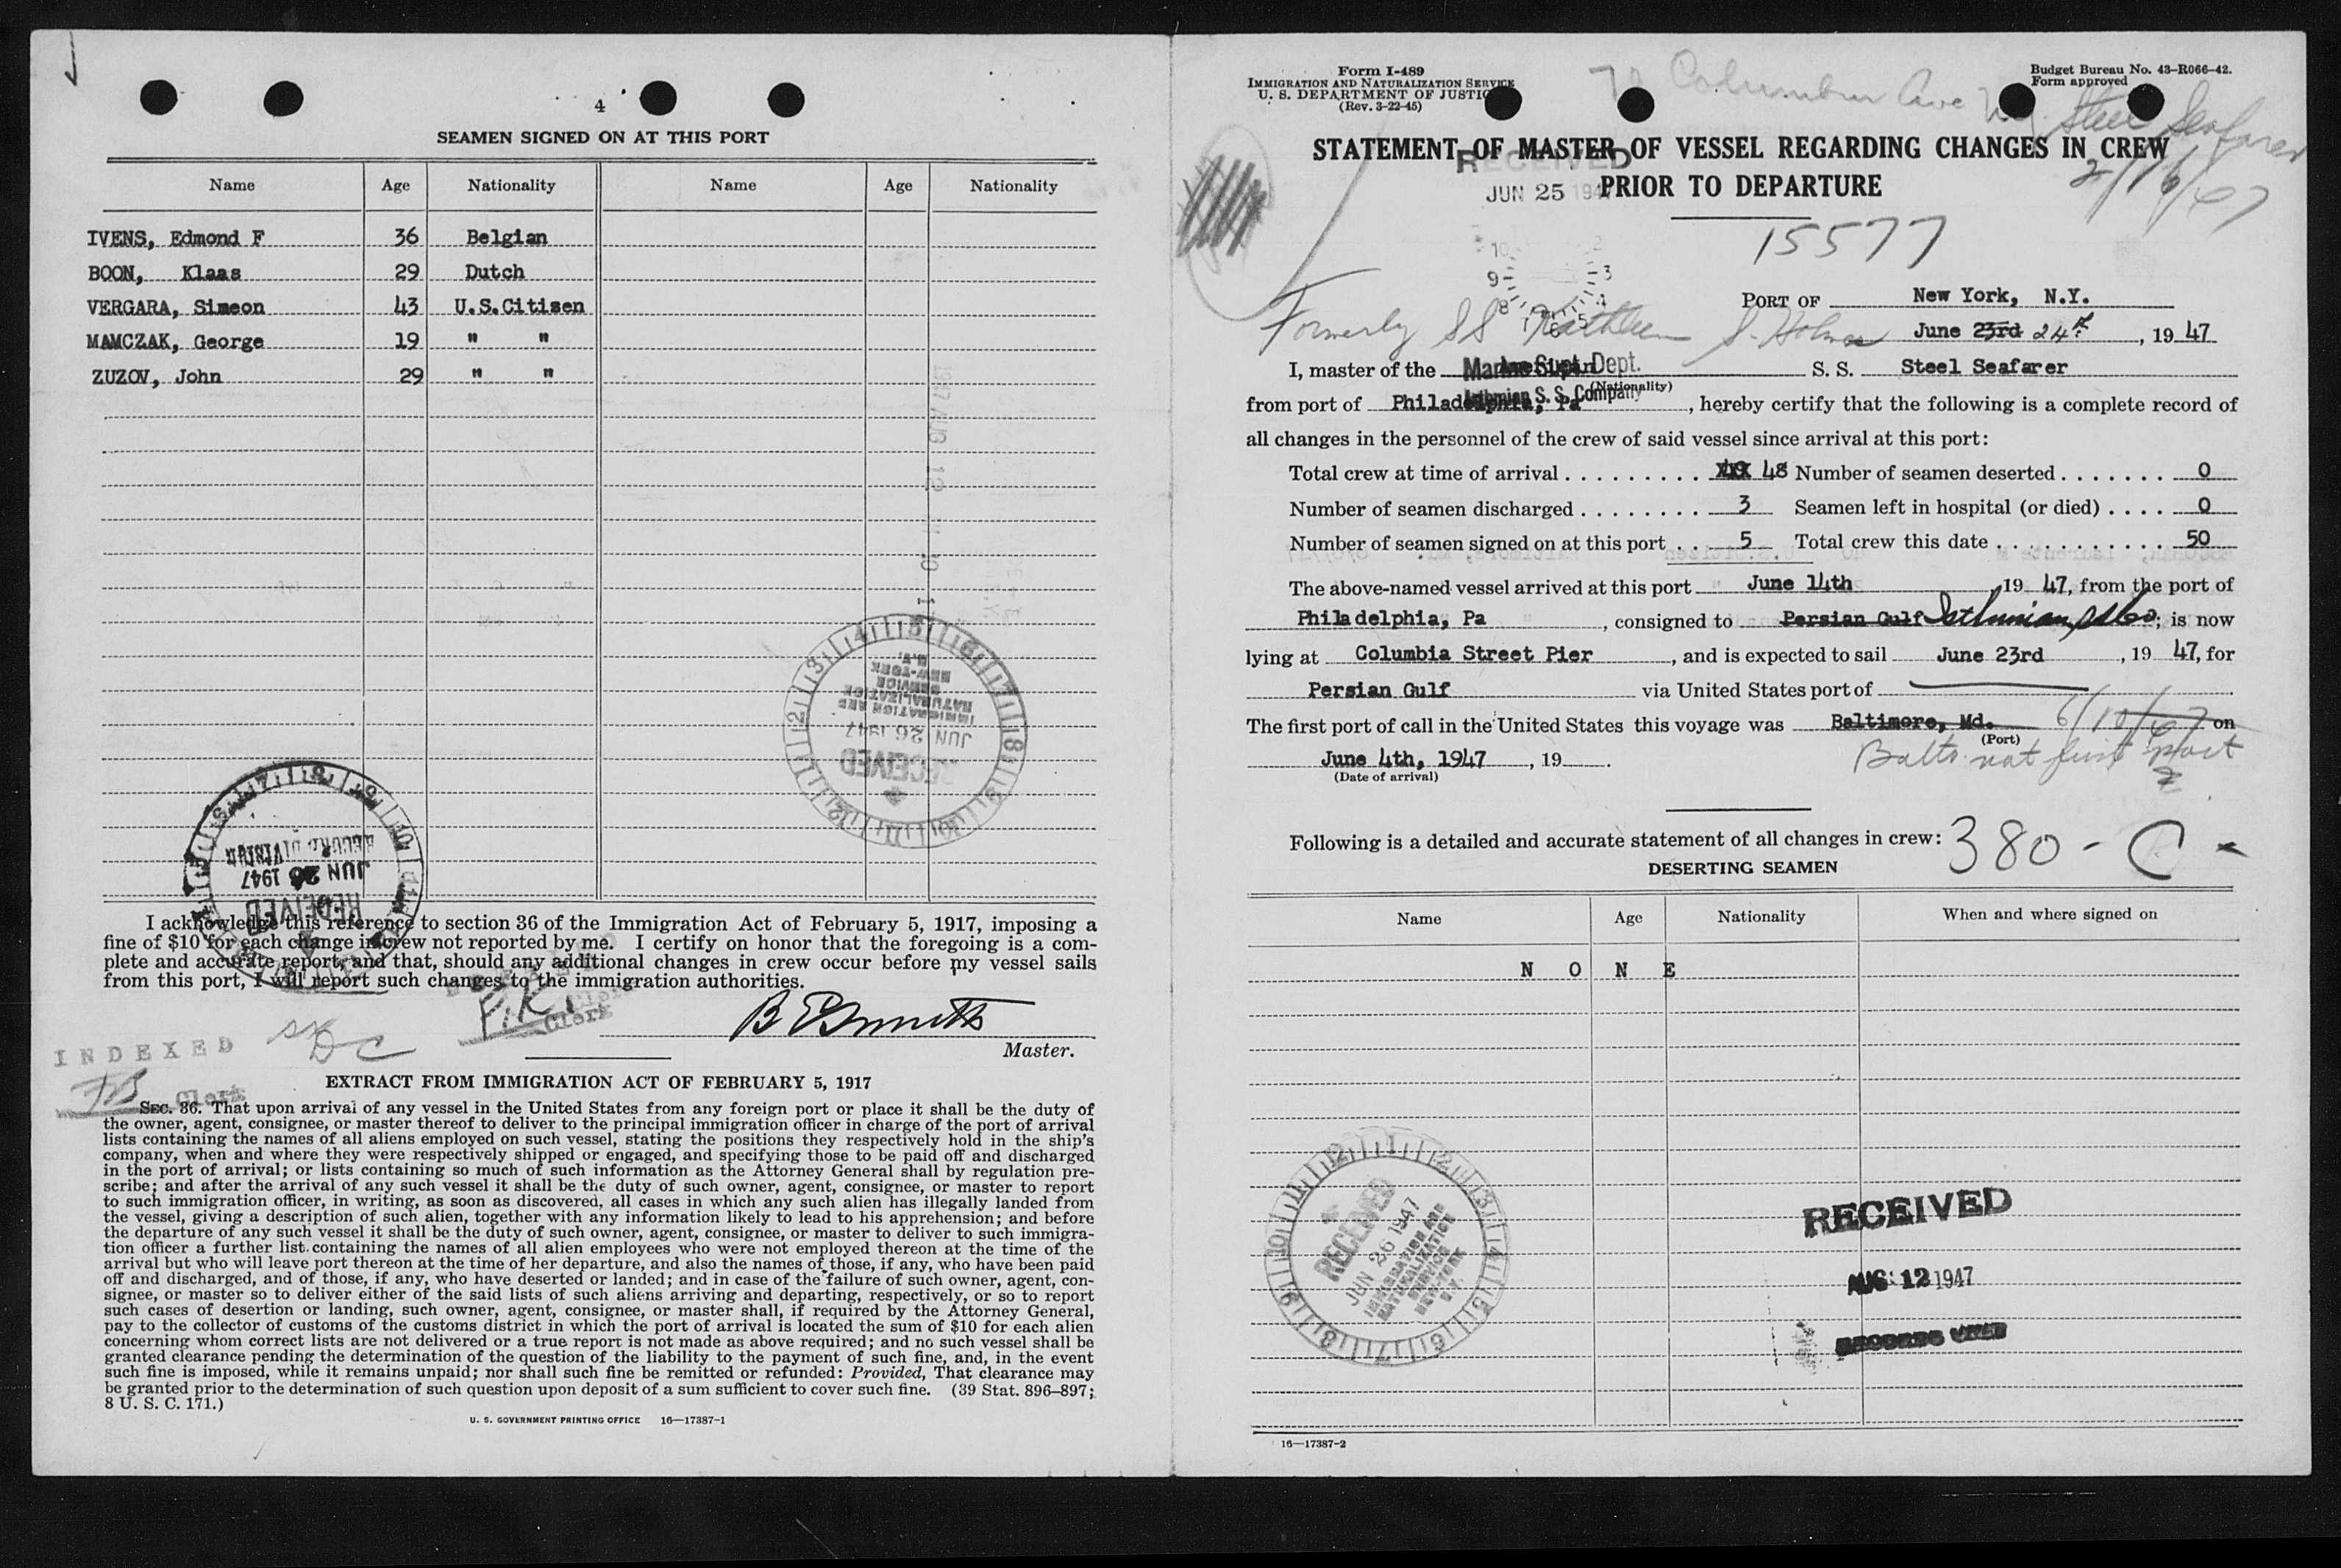 4
SEAMEN SIGNED ON AT THIS PORT
Name Age Nationality Name Age Nationality
IVENS, Edmond F 36 Belgian
BOON, Klaas 29 Dutch
VERGARA, Simeon 43 U.S.Citizen
MAMCZAK, George 19 " "
ZUZOV, John 29 " "
RECEIVED
JUN 26 1947
IMMIGRATION AND
NATURALIZATION
SERVICE
NEW-YORK
N.Y.
RECEIVED
JUN 26 1947
RECORD DIVISION
I acknowledge this reference to section 36 of the Immigration Act of February 5, 1917, imposing a
fine of $10 for each change in crew not reported by me. I certify on honor that the foregoing is a com-
plete and accurate report, and that, should any additional changes in crew occur before my vessel sails
from this port, I will report such changes to the immigration authorities.
F.K.
Clerk
Master.
INDEXED
Clerk
EXTRACT FROM IMMIGRATION ACT OF FEBRUARY 5, 1917
SEC. 36. That upon arrival of any vessel in the United States from any foreign port or place it shall be the duty of
the owner, agent, consignee, or master thereof to deliver to the principal immigration officer in charge of the port of arrival
lists containing the names of all aliens employed on such vessel, stating the positions they respectively hold in the ship's
company, when and where they were respectively shipped or engaged, and specifying those to be paid off and discharged
in the port of arrival; or lists containing so much of such information as the Attorney General shall by regulation pre-
scribe; and after the arrival of any such vessel it shall be the duty of such owner, agent, consignee, or master to report
to such immigration officer, in writing, as soon as discovered, all cases in which any such alien has illegally landed from
the vessel, giving a description of such alien, together with any information likely to lead to his apprehension; and before
the departure of any such vessel it shall be the duty of such owner, agent, consignee, or master to deliver to such immigra-
tion officer a further list containing the names of all alien employees who were not employed thereon at the time of the
arrival but who will leave port thereon at the time of her departure, and also the names of those, if any, who have been paid
off and discharged, and of those, if any, who have deserted or landed; and in case of the failure of such owner, agent, con-
signee, or master so to deliver either of the said lists of such aliens arriving and departing, respectively, or so to report
such cases of desertion or landing, such owner, agent, consignee, or master shall, if required by the Attorney General,
pay to the collector of customs of the customs district in which the port of arrival is located the sum of $10 for each alien
concerning whom correct lists are not delivered or a true report is not made as above required; and no such vessel shall be
granted clearance pending the determination of the question of the liability to the payment of such fine, and, in the event
such fine is imposed, while it remains unpaid; nor shall such fine be remitted or refunded: Provided, That clearance may
be granted prior to the determination of such question upon deposit of a sum sufficient to cover such fine. (39 Stat. 896–897;
8 U. S. C. 171.)
U. S. GOVERNMENT PRINTING OFFICE 16—17387-1
Form I-489
IMMIGRATION AND NATURALIZATION SERVICE
U. S. DEPARTMENT OF JUSTICE
(Rev. 3-22-45)
Columbia Ave
Budget Bureau No. 43-R066-42.
Form approved
Steel Seafarer
2/16/47
STATEMENT OF MASTER OF VESSEL REGARDING CHANGES IN CREW
PRIOR TO DEPARTURE
RECEIVED
JUN 25 194
15577
PORT OF New York, N.Y.
Formerly SS Kathleen S. Holmes
June 23rd 24th, 1947
I, master of the American S. S. Steel Seafarer
(Nationality)
Marine Supt. Dept.
Isthmian S. S. Company
from port of Philadelphia, Pa, hereby certify that the following is a complete record of
all changes in the personnel of the crew of said vessel since arrival at this port:
Total crew at time of arrival 48 Number of seamen deserted 0
Number of seamen discharged 3 Seamen left in hospital (or died) 0
Number of seamen signed on at this port 5 Total crew this date 50
The above-named vessel arrived at this port June 14th, 19 47, from the port of
Philadelphia, Pa, consigned to Persian Gulf Isthmian SSCo; is now
lying at Columbia Street Pier, and is expected to sail June 23rd, 19 47, for
Persian Gulf via United States port of
The first port of call in the United States this voyage was Baltimore, Md. 6/10/47 on
(Port)
June 4th, 1947, 19
(Date of arrival)
Balto. not first port
Following is a detailed and accurate statement of all changes in crew: 380 - C -
DESERTING SEAMEN
Name Age Nationality When and where signed on
N O N E
RECEIVED
JUN 26 1947
IMMIGRATION AND
NATURALIZATION
SERVICE
NEW-YORK
N.Y.
RECEIVED
AUG 12 1947
16—17387-2